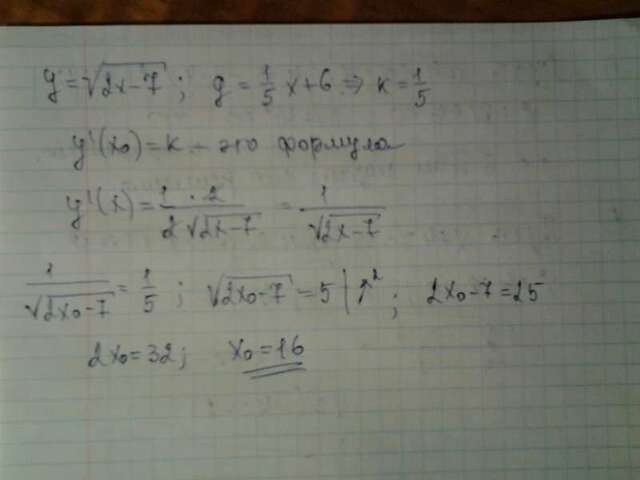 y = √(2x-7) ; y = 1/5 x+6 ⇒ k = 1/5
y'(x₀) = k - это формула
y'(x) = 1·2/(2√(2x-7)) = 1/√(2x-7)
1/√(2x₀-7) = 1/5 ; √(2x₀-7) = 5 | ↑² ; 2x₀-7 = 25
2x₀ = 32 ; x₀ = 16